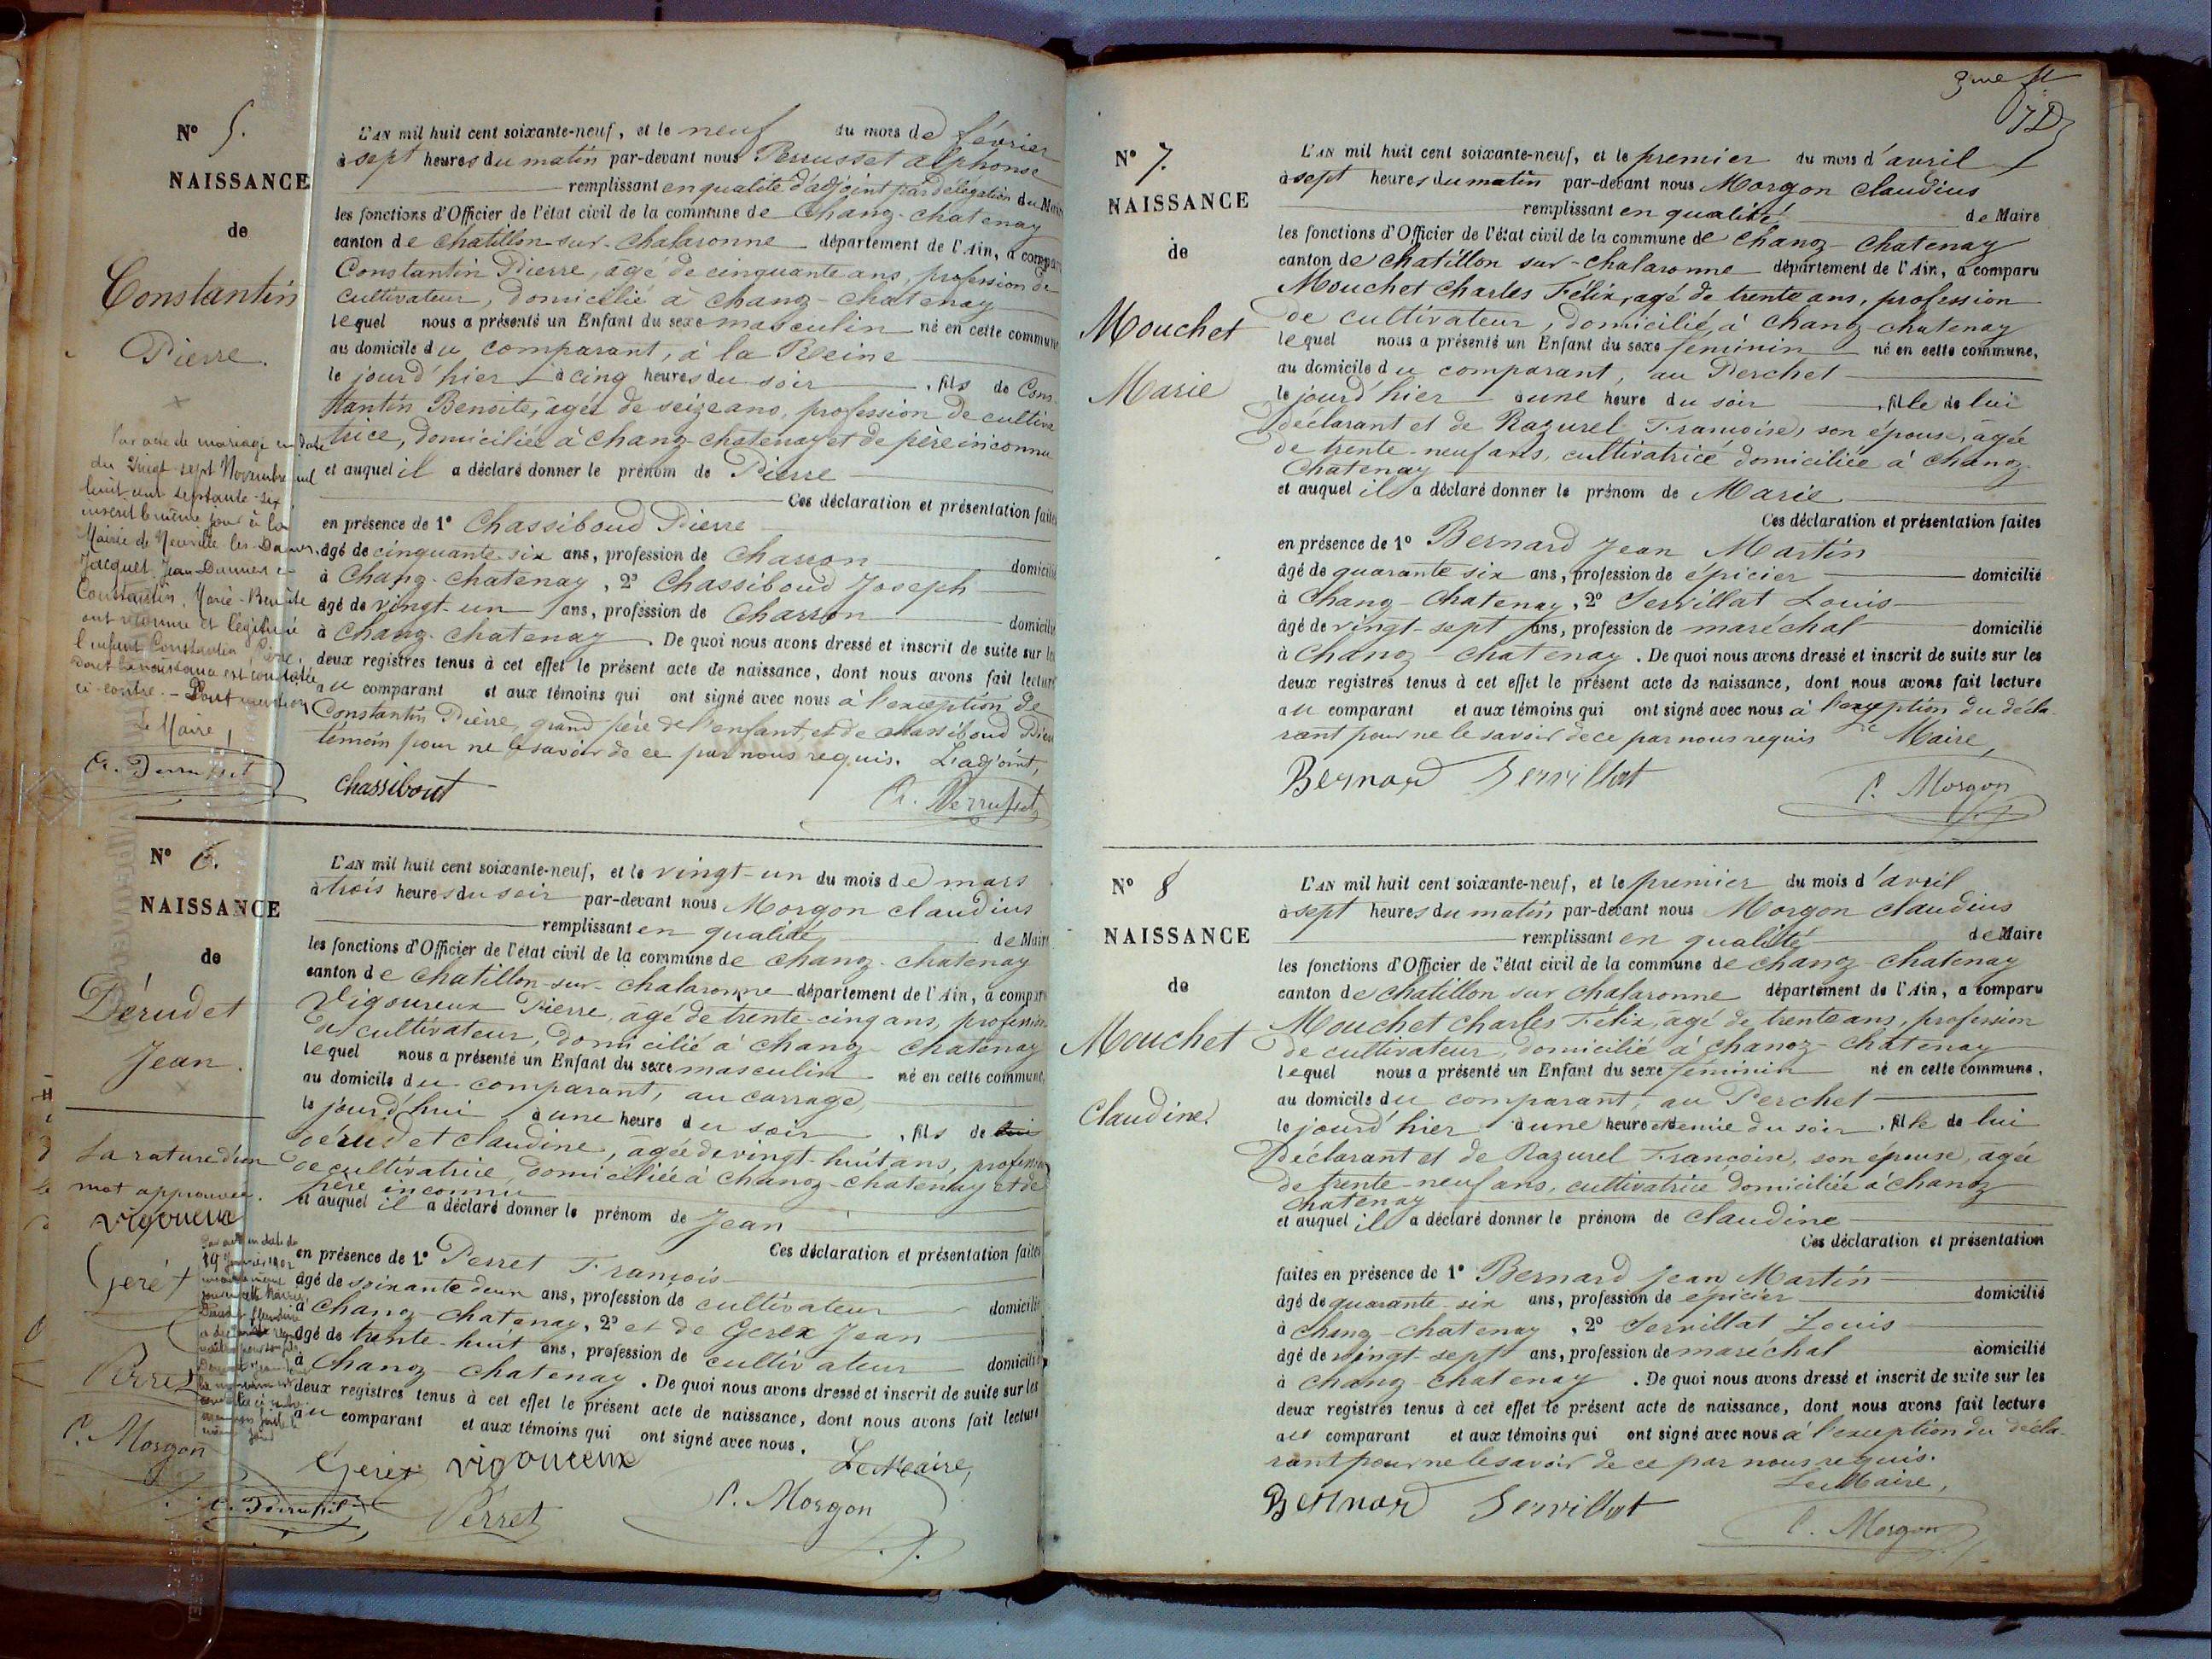 N° 5.
NAISSANCE
de
Constantin
Pierre.
Par acte de mariage en date
du vingt-sept Novembre mil
huit cent septante-six
inscrit le même jour à la
Mairie de Neuville les-Dames,
Jacquet Jean-
Constantin, Marie-Benoîte
ont reconnu et légitimé
l'enfant Constantin Pierre,
dont la naissance est constatée
ci-contre. - Dont mention
Le Maire,
A. Perrusset
L'AN mil huit cent soixante-neuf, et le neuf du mois de février
à sept heures du matin par-devant nous Perrusset Alphonse
remplissant en qualité d'adjoint par délégation du Maire
les fonctions d'Officier de l'état civil de la commune de Chanoz-chatenay
canton de chatillon-sur-chalaronne département de l'Ain, a comparu
Constantin Pierre, âgé de cinquante ans, profession de
cultivateur, domicilié à chanoz-chatenay
lequel nous a présenté un Enfant du sexe masculin né en cette commune
au domicile du comparant, à la Reine
le jourd'hier à cinq heures du soir, fils de Cons-
tantin Benoîte, âgée de seize ans, profession de cultiva
trice, domiciliée à chanoz-chatenay et de père inconnu
et auquel il a déclaré donner le prénom de Pierre
Ces déclaration et présentation faites
en présence de 1° Chassiboud Pierre
âgé de cinquante six ans, profession de charron domicilié
à Chanoz-chatenay, 2° Chassiboud Joseph
âgé de vingt-un ans, profession de Charron domicilié
à Chanoz-chatenay. De quoi nous avons dressé et inscrit de suite sur les
deux registres tenus à cet effet le présent acte de naissance, dont nous avons fait lecture
au comparant et aux témoins qui ont signé avec nous à l'exception de
Constantin Pierre, grand père de l'enfant et de chassiboud Pierre
témoin pour ne le savoir de ce par nous requis. L'adjoint,
Chassibout
A. Perrusset
N° 6.
NAISSANCE
de
Dérudet
Jean.
La rature d'un
mot approuvée.
vigoureux
Gerex
Perret
C. Morgon
Par acte en date du
19 Janvier 1902
A. Perrusset
L'AN mil huit cent soixante-neuf, et le vingt-un du mois de mars
à trois heures du soir par-devant nous Morgon claudius
remplissant en qualité de Maire
les fonctions d'Officier de l'état civil de la commune de chanoz-chatenay
canton de chatillon-sur-chalaronne département de l'Ain, a comparu
Vigoureux Pierre, âgé de trente-cinq ans, profession
de cultivateur, domicilié à chanoz-chatenay
lequel nous a présenté un Enfant du sexe masculin né en cette commune,
au domicile du comparant, au carrage,
le jourd'hui à une heure du soir, fils de lui
Dérudet claudine, âgée de vingt-huit ans, profession
de cultivatrice, domiciliée à chanoz-chatenay et de
père inconnu
et auquel il a déclaré donner le prénom de Jean
Ces déclaration et présentation faites
en présence de 1° Perret François
âgé de soixante deux ans, profession de cultivateur domicilié
à Chanoz-chatenay, 2° et de Gerex Jean
âgé de trente-huit ans, profession de cultivateur domicilié
à Chanoz-chatenay. De quoi nous avons dressé et inscrit de suite sur les
deux registres tenus à cet effet le présent acte de naissance, dont nous avons fait lecture
au comparant et aux témoins qui ont signé avec nous.
Le Maire,
Gerex vigoureux
Perret
C. Morgon
3me f
N° 7.
NAISSANCE
de
Mouchet
Marie
L'AN mil huit cent soixante-neuf, et le premier du mois d'avril
à sept heures du matin par-devant nous Morgon claudius
remplissant en qualité de Maire
les fonctions d'Officier de l'état civil de la commune de Chanoz-chatenay
canton de chatillon sur-chalaronne département de l'Ain, a comparu
Mouchet Charles Félix, agé de trente ans, profession
de cultivateur, domicilié, à chanoz-chatenay
lequel nous a présenté un Enfant du sexe féminin né en cette commune,
au domicile du comparant, au Perchet
le jourd'hier à une heure du soir, fille de lui
Déclarant et de Razurel Françoise, son épouse, âgée
de trente-neuf ans, cultivatrice domiciliée à chanoz-
chatenay
et auquel il a déclaré donner le prénom de Marie
Ces déclaration et présentation faites
en présence de 1° Bernard Jean Martin
âgé de quarante six ans, profession de épicier domicilié
à Chanoz-Chatenay, 2° Servillat Louis
âgé de vingt-sept ans, profession de maréchal domicilié
à Chanoz-chatenay. De quoi nous avons dressé et inscrit de suite sur les
deux registres tenus à cet effet le présent acte de naissance, dont nous avons fait lecture
au comparant et aux témoins qui ont signé avec nous à l'exception du décla-
rant pour ne le savoir de ce par nous requis Le Maire,
Bernard Servillat
C. Morgon
N° 8
NAISSANCE
de
Mouchet
Claudine.
L'AN mil huit cent soixante-neuf, et le premier du mois d'avril
à sept heures du matin par-devant nous Morgon claudius
remplissant en qualité de Maire
les fonctions d'Officier de l'état civil de la commune de chanoz-chatenay
canton de chatillon sur chalaronne département de l'Ain, a comparu
Mouchet charles Félix, âgé de trente ans, profession
de cultivateur, domicilié à chanoz-chatenay
lequel nous a présenté un Enfant du sexe féminin né en cette commune,
au domicile du comparant, au Perchet
le jourd'hier à une heure et demie du soir, fille de lui
Déclarant et de Razurel Françoise, son épouse, âgée
de trente-neuf ans, cultivatrice domiciliée à chanoz
chatenay
et auquel il a déclaré donner le prénom de claudine
Ces déclaration et présentation
faites en présence de 1° Bernard Jean Martin
âgé de quarante-six ans, profession de épicier domicilié
à chanoz-chatenay, 2° Servillat Louis
âgé de vingt-sept ans, profession de maréchal domicilié
à chanoz-chatenay. De quoi nous avons dressé et inscrit de suite sur les
deux registres tenus à cet effet le présent acte de naissance, dont nous avons fait lecture
au comparant et aux témoins qui ont signé avec nous à l'exception du décla-
rant pour ne le savoir de ce par nous requis.
Le Maire,
Bernard Servillat
C. Morgon